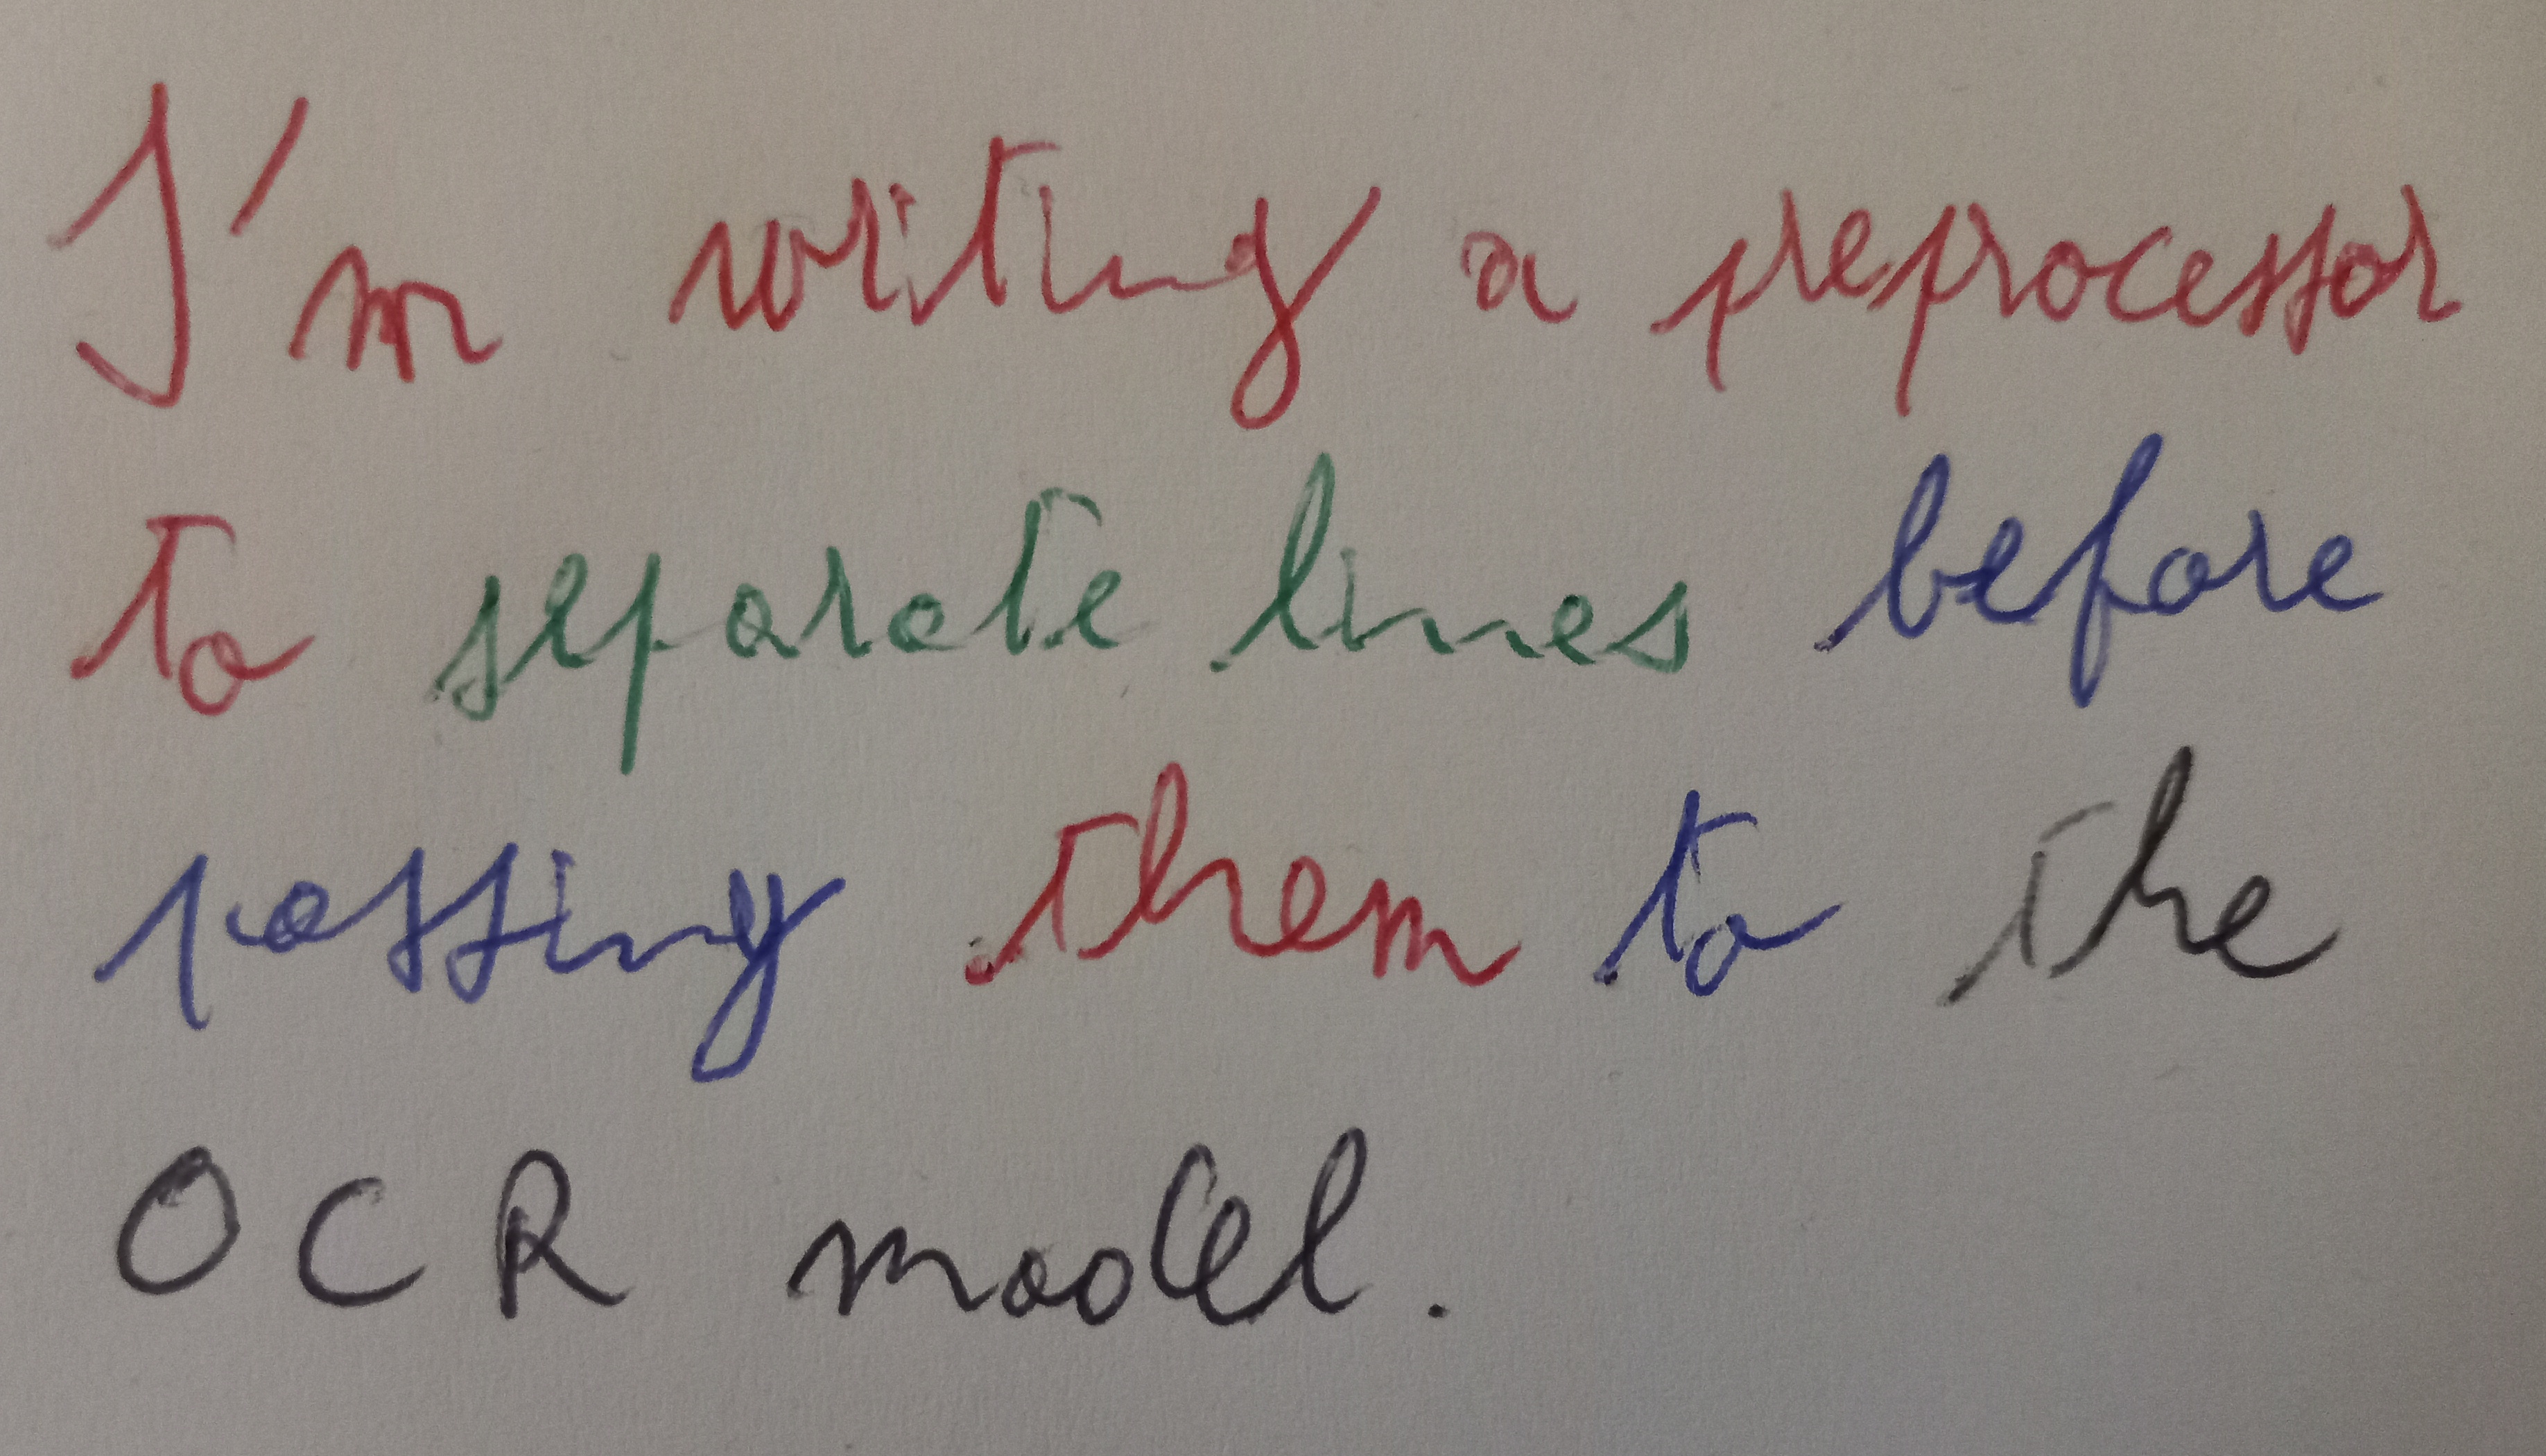 I'm writing a preprocessor
to separate lines before
passing them to the
OCR model.